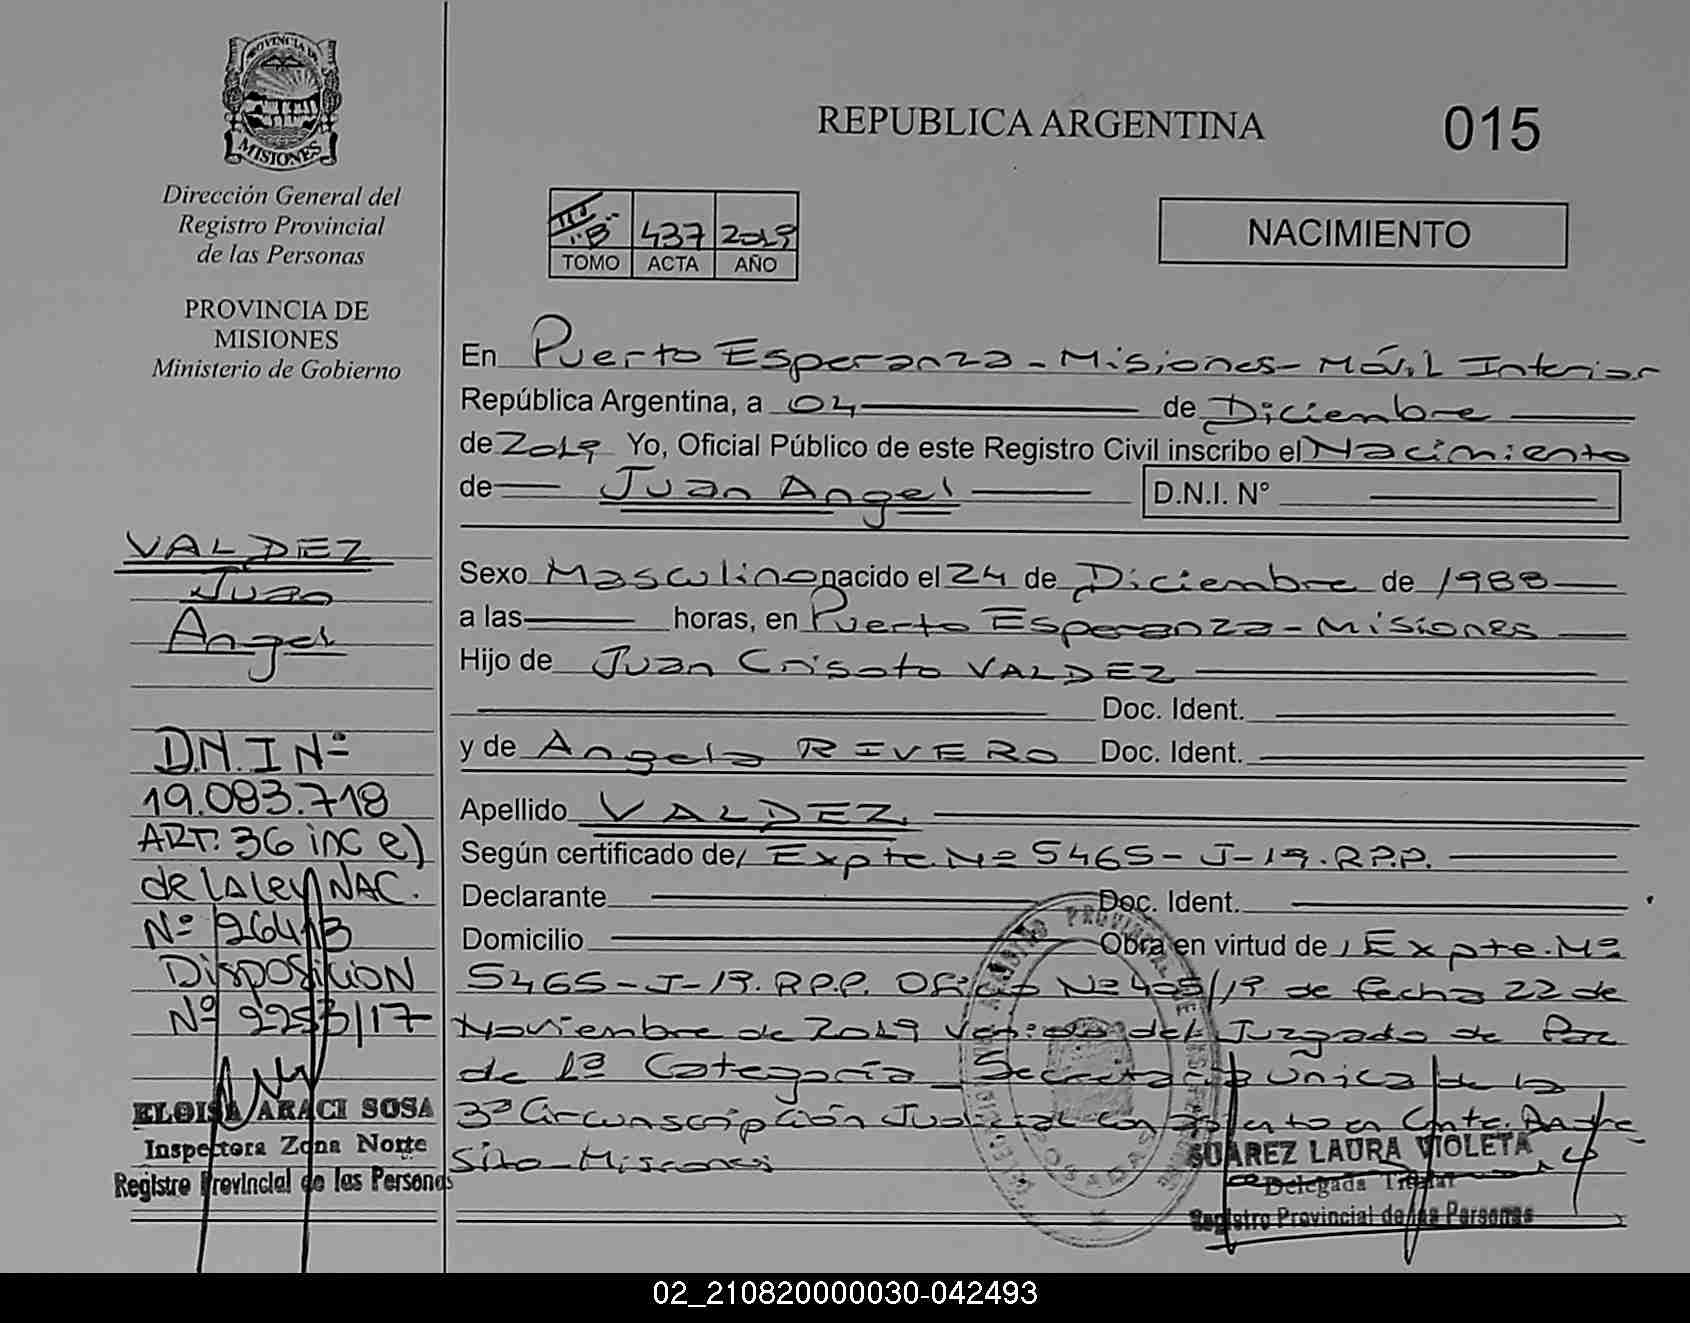 PROVINCIA DE
MISIONES
Dirección General del
Registro Provincial
de las Personas
PROVINCIA DE
MISIONES
Ministerio de Gobierno
VALDEZ
Juan
Angel
D.N.I Nº
19.083.718
ART. 36 inc e)
de la Ley NAC.
Nº 26413
Disposicion
Nº 2253/17
ELOISA ARACI SOSA
Inspectora Zona Norte
Registro Provincial de las Personas
REPUBLICA ARGENTINA
015
NACIMIENTO
"B" 437 2019
TOMO ACTA AÑO
En Puerto Esperanza - Misiones - Móvil Interior
República Argentina, a 04 de Diciembre
de 2019 Yo, Oficial Público de este Registro Civil inscribo el Nacimiento
de Juan Angel D.N.I. N°
Sexo Masculino nacido el 24 de Diciembre de 1988
a las horas, en Puerto Esperanza - Misiones
Hijo de Juan Crisoto VALDEZ
Doc. Ident.
y de Angela RIVERO Doc. Ident.
Apellido VALDEZ
Según certificado de, Expte. Nº 5465 - J - 19. R.P.P.
Declarante Doc. Ident.
Domicilio Obra en virtud de, Expte. Nº
5465 - J - 19. R.P.P. Oficio Nº 405/19 de fecha 22 de
Noviembre de 2019 venido del Juzgado de Paz
de 1ª Categoría - Secretaría única de la
3ª Circunscripción Judicial con asiento en Cnte. Andre
sito - Misiones
SUAREZ LAURA VIOLETA
Delegada Titular
Registro Provincial de las Personas
02_210820000030-042493